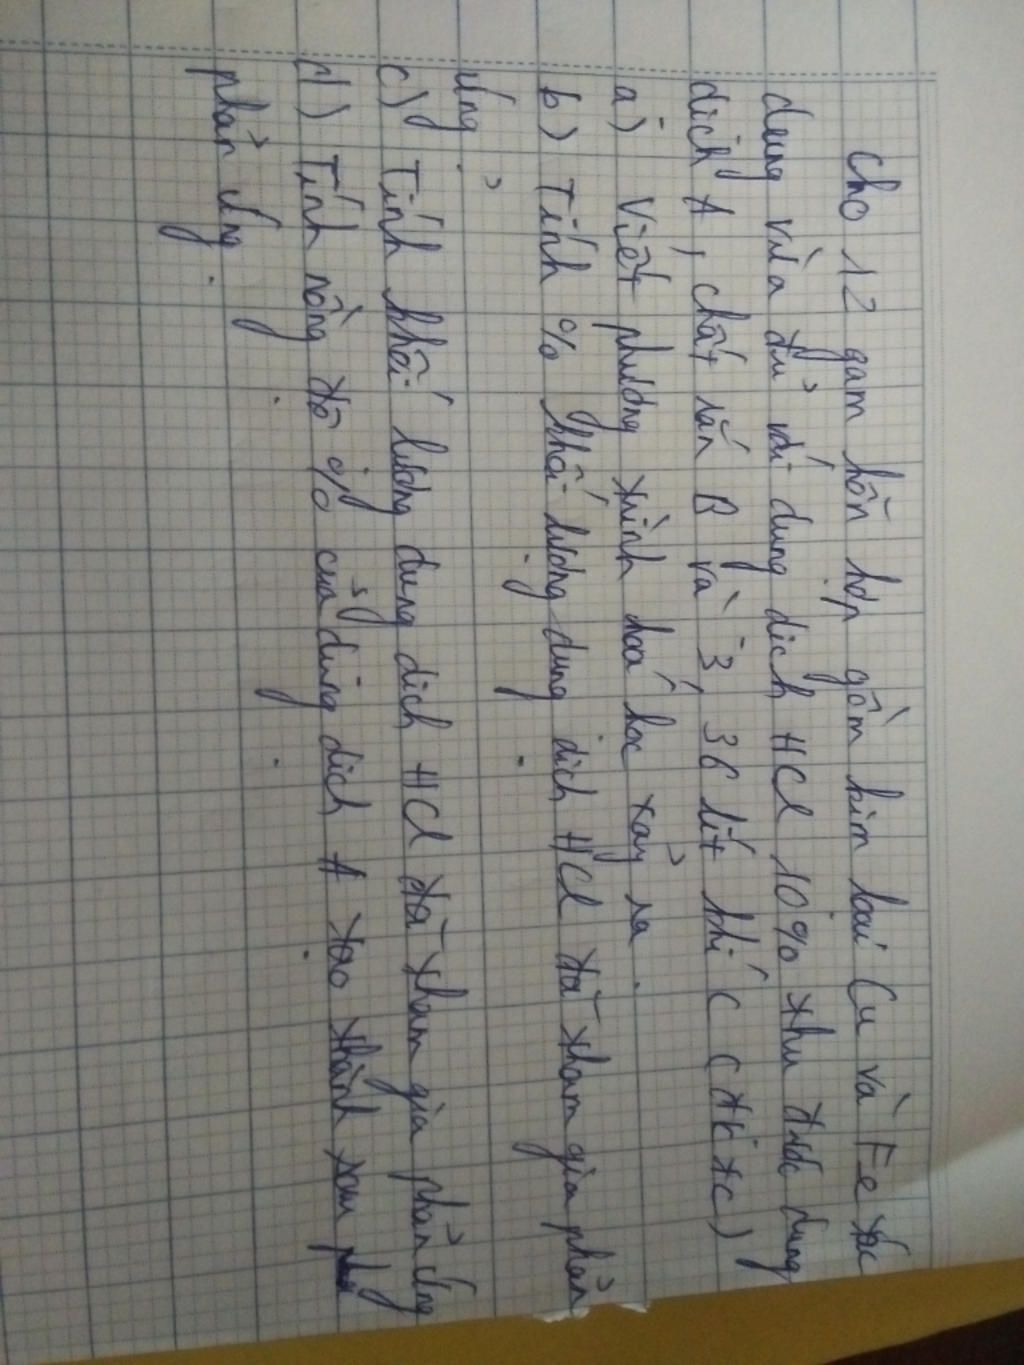 Cho 12 gam hỗn hợp gồm kim loại Cu và Fe tác
dụng vừa đủ với dung dịch HCl 10% thu được dung
dịch A, chất rắn B và 3,36 lít khí C (đktc)
a) Viết phương trình hoá học xảy ra.
b) Tính % khối lượng dung dịch HCl đã tham gia phản
ứng.
c) Tính khối lượng dung dịch HCl đã tham gia phản ứng
d) Tính nồng độ % của dung dịch A tạo thành sau
phản ứng.